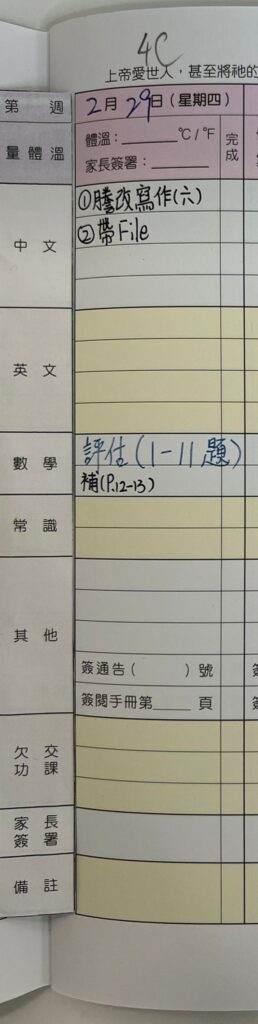 4C
上帝愛世人，甚至將祂的
第 週
2月29日(星期四)
量體溫
體溫：______°C/°F
家長簽署：______
完成
中 文
①騰改寫作(六)
②帶File
英 文
數 學
評估(1-11題)
補(P.12-13)
常 識
其 他
簽通告( )號
簽閱手冊第____頁
欠 交
功 課
家 長
簽 署
備 註